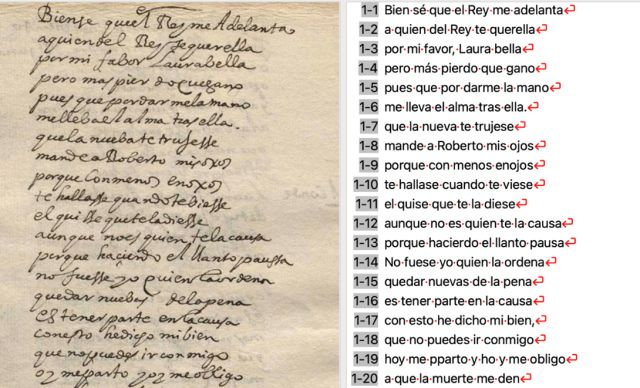 Biense queel Rey me Adelanta
aquien del Rey sequerella
por mi fabor Laurabella
pero mas pierdo quegano
pues que pordar melamano
mellebaelalma trasella.
quela nuebate trujesse
mande a Roberto mis oxos
porque Conmenos enoxos
te hallasse quando te biesse
el quisse quete ladiesse
aunque noes quien telacausa
porque haciendo el llanto paussa
no fuesse yo quien laordena
quedar nuebas delapena
es tener parte en lacausa
conesto hedicho mi bien
que nopuedes ir conmigo
oy meparto yoy me obligo
1-1 Bien sé que el Rey me adelanta
1-2 a quien del Rey te querella
1-3 por mi favor, Laura bella
1-4 pero más pierdo que gano
1-5 pues que por darme la mano
1-6 me lleva el alma tras ella.
1-7 que la nueva te trujese
1-8 mande a Roberto mis ojos
1-9 porque con menos enojos
1-10 te hallase cuando te viese
1-11 el quise que te la diese
1-12 aunque no es quien te la causa
1-13 porque hacierdo el llanto pausa
1-14 No fuese yo quien la ordena
1-15 quedar nuevas de la pena
1-16 es tener parte en la causa
1-17 con esto he dicho mi bien,
1-18 que no puedes ir conmigo
1-19 hoy me pparto y ho y me obligo
1-20 a que la muerte me den